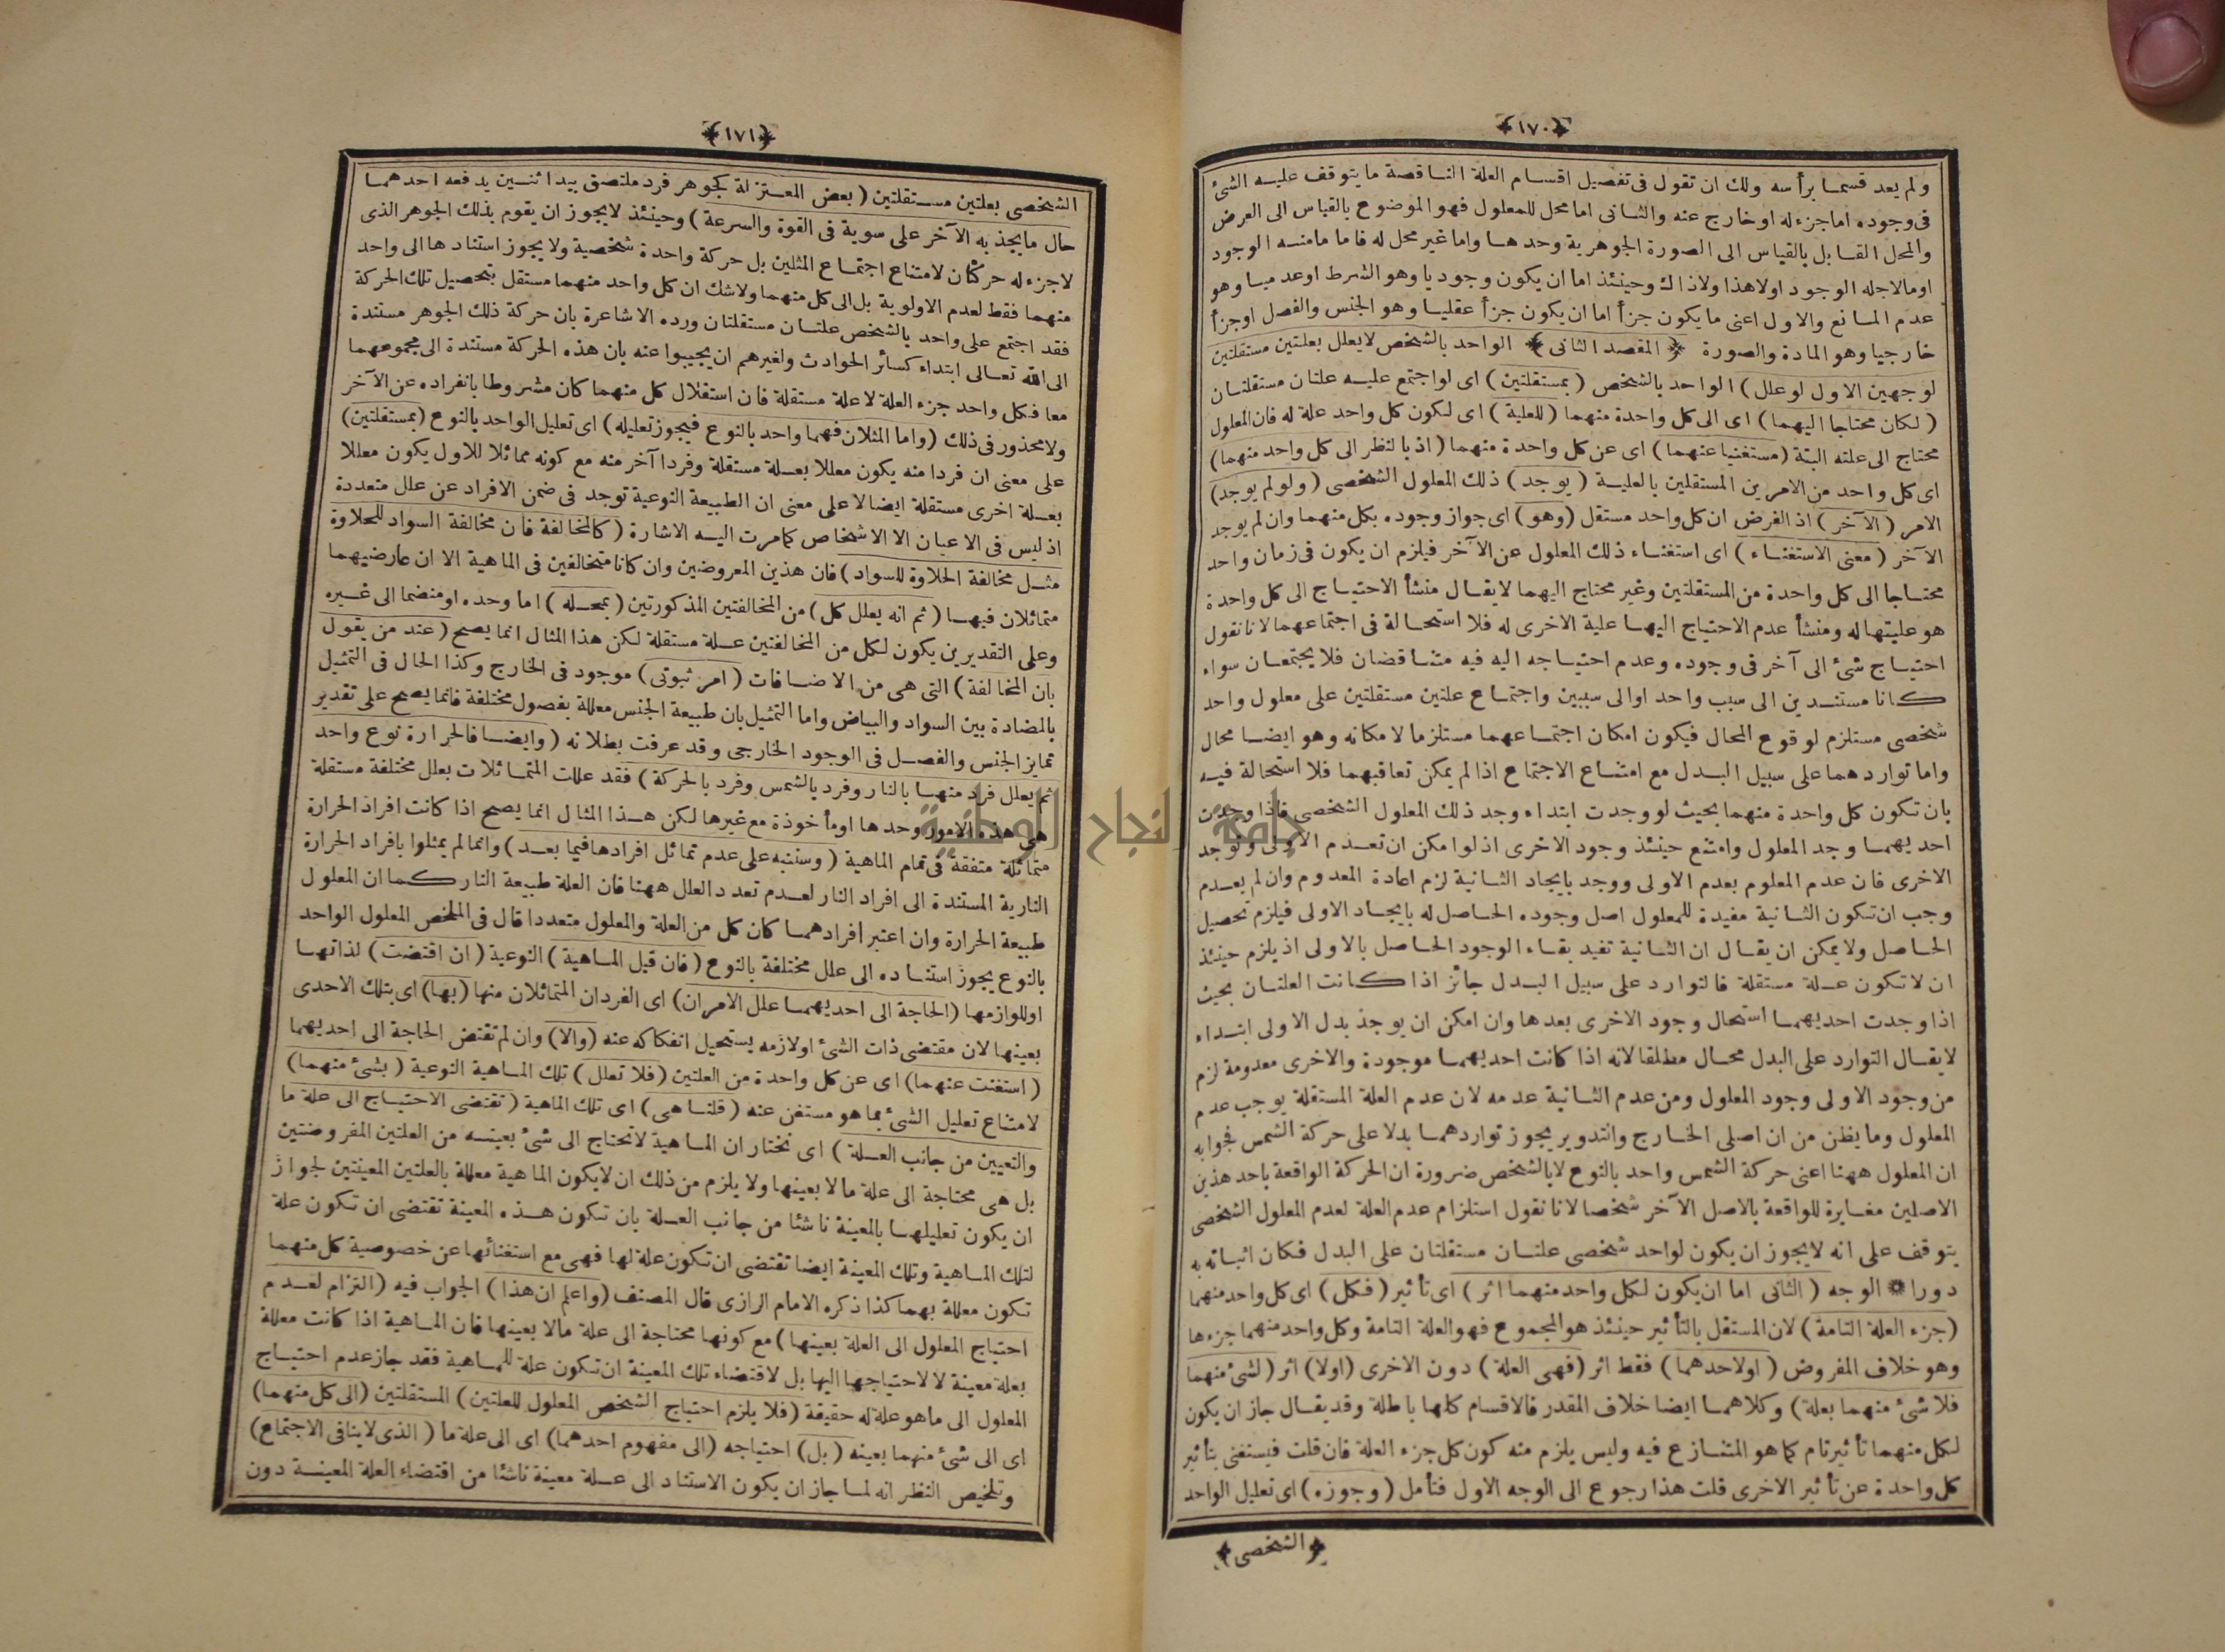 ﴿١٧٠﴾
ولم يعد قسما برأسه ولك ان تقول فى تفصيل اقسام العلة الناقصة ما يتوقف عليه الشئ
فى وجوده اما جزء له او خارج عنه والثانى اما محل للمعلول فهو الموضوع بالقياس الى العرض
والمحل القابل بالقياس الى الصورة الجوهرية وحدها واما غير محل له فاما ما منه الوجود
او ما لاجله الوجود او لا هذا ولا ذاك وحينئذ اما ان يكون وجوديا وهو الشرط او عدميا وهو
عدم المانع والاول اعنى ما يكون جزأ اما ان يكون جزأ عقليا وهو الجنس والفصل او جزأ
خارجيا وهو المادة والصورة ﴿ المقصد الثانى ﴾ الواحد بالشخص لا يعلل بعلتين مستقلتين
لوجهين الاول لو علل ) الواحد بالشخص ( بمستقلتين ) اى لو اجتمع عليه علتان مستقلتان
( لكان محتاجا اليهما ) اى الى كل واحدة منهما ( للعلية ) اى لكون كل واحد علة له فان المعلول
محتاج الى علته البتة ( مستغنيا عنهما ) اى عن كل واحدة منهما ( اذ بالنظر الى كل واحد منهما )
اى كل واحد من الامرين المستقلين بالعلية ( يوجد ) ذلك المعلول الشخصى ( ولو لم يوجد )
الامر ( الآخر ) اذ الفرض ان كل واحد مستقل ( وهو ) اى جواز وجوده بكل منهما وان لم يوجد
الآخر ( معنى الاستغناء ) اى استغناء ذلك المعلول عن الآخر فيلزم ان يكون فى زمان واحد
محتاجا الى كل واحدة من المستقلتين وغير محتاج اليهما لا يقال منشأ الاحتياج الى كل واحدة
هو عليتها له ومنشأ عدم الاحتياج اليها علية الاخرى له فلا استحالة فى اجتماعهما لانا نقول
احتياج شئ الى آخر فى وجوده وعدم احتياجه اليه فيه متناقضان فلا يجتمعان سواء
كانا مستندين الى سبب واحد او الى سببين واجتماع علتين مستقلتين على معلول واحد
شخصى مستلزم لوقوع المحال فيكون امكان اجتماعهما مستلزما لامكانه وهو ايضا محال
واما تواردهما على سبيل البدل مع امتناع الاجتماع اذا لم يمكن تعاقبهما فلا استحالة فيه
بان تكون كل واحدة منهما بحيث لو وجدت ابتداء وجد ذلك المعلول الشخصى فاذا وجدت
احديهما وجد المعلول وامتنع حينئذ وجود الاخرى اذ لو امكن ان تعدم الاولى وتوجد
الاخرى فان عدم المعلوم بعدم الاولى ووجد بايجاد الثانية لزم اعادة المعدوم وان لم يعدم
وجب ان تكون الثانية مفيدة للمعلول اصل وجوده الحاصل له بايجاد الاولى فيلزم تحصيل
الحاصل ولا يمكن ان يقال ان الثانية تفيد بقاء الوجود الحاصل بالاولى اذ يلزم حينئذ
ان لا تكون علة مستقلة فالتوارد على سبيل البدل جائز اذا كانت العلتان بحيث
اذا وجدت احديهما استحال وجود الاخرى بعدها وان امكن ان يوجد بدل الاولى ابتداء
لا يقال التوارد على البدل محال مطلقا لانه اذا كانت احديهما موجودة والاخرى معدومة لزم
من وجود الاولى وجود المعلول ومن عدم الثانية عدمه لان عدم العلة المستقلة يوجب عدم
المعلول وما يظن من ان اصلى الخارج والتدوير يجوز تواردهما بدلا على حركة الشمس فجوابه
ان المعلول ههنا اعنى حركة الشمس واحد بالنوع لا بالشخص ضرورة ان الحركة الواقعة باحد هذين
الاصلين مغايرة للواقعة بالاصل الآخر شخصا لانا نقول استلزام عدم العلة لعدم المعلول الشخصى
يتوقف على انه لا يجوز ان يكون لواحد شخصى علتان مستقلتان على البدل فكان اثباته به
دورا * الوجه ( الثانى اما ان يكون لكل واحد منهما اثر ) اى تأثير ( فكل ) اى كل واحد منهما
( جزء العلة التامة ) لان المستقل بالتأثير حينئذ هو المجموع فهو العلة التامة وكل واحد منهما جزءها
وهو خلاف المفروض ( او لاحدهما ) فقط اثر ( فهى العلة ) دون الاخرى ( اولا ) اثر ( لشئ منهما
فلا شئ منهما بعلة ) وكلاهما ايضا خلاف المقدر فالاقسام كلها باطلة وقد يقال جاز ان يكون
لكل منهما تأثير تام كما هو المتنازع فيه وليس يلزم منه كون كل جزء العلة فان قلت فيستغنى بتأثير
كل واحدة عن تأثير الاخرى قلت هذا رجوع الى الوجه الاول فتأمل ( وجوزه ) اى تعليل الواحد
﴿ الشخصى ﴾
﴿١٧١﴾
الشخصى بعلتين مستقلتين ( بعض المعتزلة كجوهر فرد ملتصق بيد اثنين يدفعه احدهما
حال ما يجذبه الآخر على سوية فى القوة والسرعة ) وحينئذ لا يجوز ان يقوم بذلك الجوهر الذى
لا جزء له حركتان لامتناع اجتماع المثلين بل حركة واحدة شخصية ولا يجوز استنادها الى واحد
منهما فقط لعدم الاولوية بل الى كل منهما ولا شك ان كل واحد منهما مستقل بتحصيل تلك الحركة
فقد اجتمع على واحد بالشخص علتان مستقلتان ورده الاشاعرة بان حركة ذلك الجوهر مستندة
الى الله تعالى ابتداء كسائر الحوادث ولغيرهم ان يجيبوا عنه بان هذه الحركة مستندة الى مجموعهما
معا فكل واحد جزء العلة لا علة مستقلة فان استقلال كل منهما كان مشروطا بانفراده عن الآخر
ولا محذور فى ذلك ( واما المثلان فهما واحد بالنوع فيجوز تعليله ) اى تعليل الواحد بالنوع ( بمستقلتين )
على معنى ان فردا منه يكون معللا بعلة مستقلة وفردا آخر منه مع كونه مماثلا للاول يكون معللا
بعلة اخرى مستقلة ايضا لا على معنى ان الطبيعة النوعية توجد فى ضمن الافراد عن علل متعددة
اذ ليس فى الاعيان الا الاشخاص كما مرت اليه الاشارة ( كالمخالفة فان مخالفة السواد للحلاوة
مثل مخالفة الحلاوة للسواد ) فان هذين المعروضين وان كانا متخالفين فى الماهية الا ان عارضيهما
متماثلان فيها ( ثم انه يعلل كل ) من المخالفتين المذكورتين ( بمحله ) اما وحده او منضما الى غيره
وعلى التقديرين يكون لكل من المخالفتين علة مستقلة لكن هذا المثال انما يصح ( عند من يقول
بان المخالفة ) التى هى من الاضافات ( امر ثبوتى ) موجود فى الخارج وكذا الحال فى التمثيل
بالمضادة بين السواد والبياض واما التمثيل بان طبيعة الجنس معللة بفصول مختلفة فانما يصح على تقدير
تمايز الجنس والفصل فى الوجود الخارجى وقد عرفت بطلانه ( وايضا فالحرارة نوع واحد
ثم يعلل فرد منها بالنار وفرد بالشمس وفرد بالحركة ) فقد عللت المتماثلات بعلل مختلفة مستقلة
هى هذه الامور وحدها او مأخوذة مع غيرها لكن هذا المثال انما يصح اذا كانت افراد الحرارة
متماثلة متفقة فى تمام الماهية ( وسننبه على عدم تماثل افرادها فيما بعد ) وانما لم يمثلوا بافراد الحرارة
النارية المستندة الى افراد النار لعدم تعدد العلل ههنا فان العلة طبيعة النار كما ان المعلول
طبيعة الحرارة وان اعتبر افرادهما كان كل من العلة والمعلول متعددا قال فى الملخص المعلول الواحد
بالنوع يجوز استناده الى علل مختلفة بالنوع ( فان قيل الماهية ) النوعية ( ان اقتضت ) لذاتها
او للوازمها ( الحاجة الى احديهما علل الامران ) اى الفردان المتماثلان منها ( بها ) اى بتلك الاحدى
بعينها لان مقتضى ذات الشئ او لازمه يستحيل انفكاكه عنه ( والا ) وان لم تقتض الحاجة الى احديهما
( استغنت عنهما ) اى عن كل واحدة من العلتين ( فلا تعلل ) تلك الماهية النوعية ( بشئ منهما )
لامتناع تعليل الشئ بما هو مستغن عنه ( قلنا هى ) اى تلك الماهية ( تقتضى الاحتياج الى علة ما
والتعيين من جانب العلة ) اى نختار ان الماهية لا تحتاج الى شئ بعينه من العلتين المفروضتين
بل هى محتاجة الى علة ما لا بعينها ولا يلزم من ذلك ان لا يكون الماهية معللة بالعلتين المعينتين لجواز
ان يكون تعليلها بالمعينة ناشئا من جانب العلة بان تكون هذه المعينة تقتضى ان تكون علة
لتلك الماهية وتلك المعينة ايضا تقتضى ان تكون علة لها فهى مع استغنائها عن خصوصية كل منهما
تكون معللة بهما كذا ذكره الامام الرازى قال المصنف ( واعلم ان هذا ) الجواب فيه ( التزام لعدم
احتياج المعلول الى العلة بعينها ) مع كونها محتاجة الى علة ما لا بعينها فان الماهية اذا كانت معللة
بعلة معينة لا لاحتياجها اليها بل لاقتضاء تلك المعينة ان تكون علة للماهية فقد جاز عدم احتياج
المعلول الى ما هو علة له حقيقة ( فلا يلزم احتياج الشخص المعلول للعلتين ) المستقلتين ( الى كل منهما )
اى الى شئ منهما بعينه ( بل ) احتياجه ( الى مفهوم احدهما ) اى الى علة ما ( الذى لا ينافى الاجتماع )
وتلخيص النظر انه لما جاز ان يكون الاستناد الى علة معينة ناشئا من اقتضاء العلة المعينة دون
جامعة النجاح الوطنية